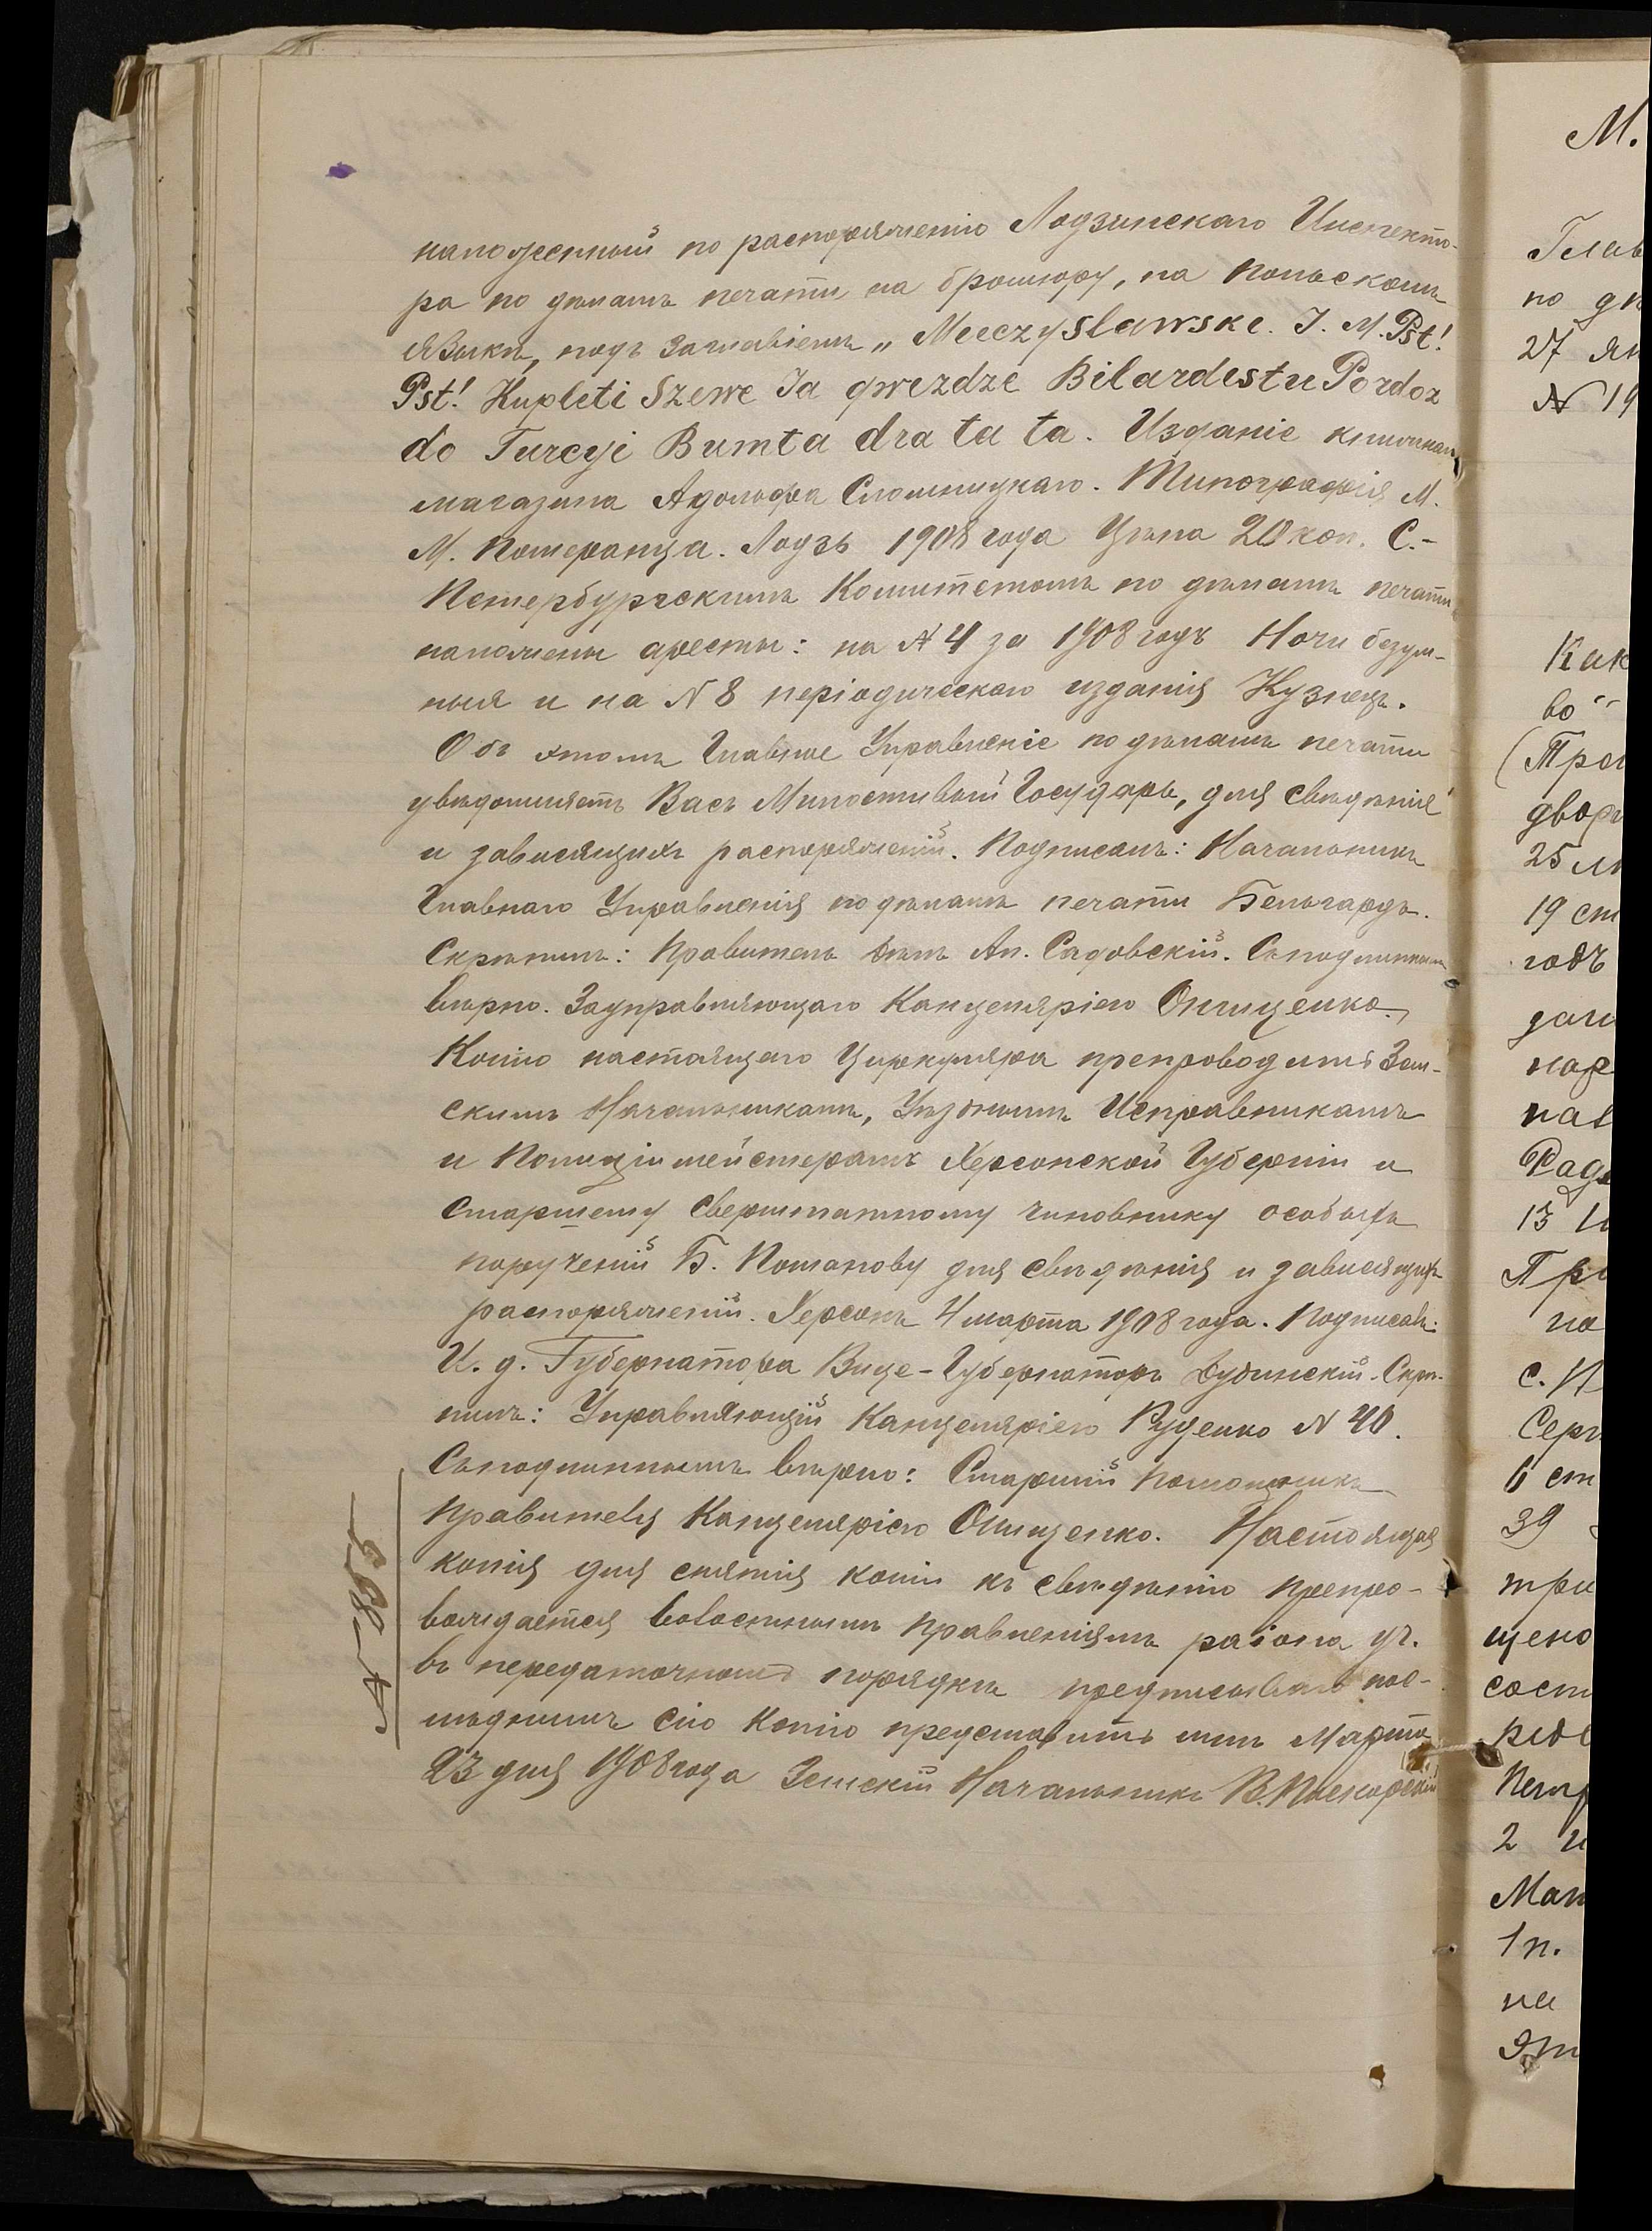 наложенный по распоряженію Лодзинскаго Инспекто-
ра по дѣламъ печати на брошюру, на польскомъ
языкѣ, подъ заглавіемъ „Meeczyslawske. J. M. Pst!
Pst! Kupleti Szewe Ja gwezdze Bilardestu Pordoz
do Turcyi Bumta dra ta ta. Изданіе книжнаго
магазина Адольфа Сломницкаго. Типографія М.
М. Померанца. Лодзь 1908 года Цѣна 20 коп. С.-
Петербургскимъ Комитетомъ по дѣламъ печати
наложены аресты: на № 4 за 1908 годъ Ночи безум-
ныя и на № 8 періодическаго изданія Кузнецъ.
Объ этомъ Главное Управленіе по дѣламъ печати
увѣдомляетъ Васъ Милостивый Государь, для свѣдѣнія
и зависящихъ распоряженій. Подписалъ: Начальникъ
Главнаго Управленія по дѣламъ печати Бельгардъ.
Скрѣпилъ: Правитель дѣлъ Ап. Садовскій. Съ подлиннымъ
вѣрно. За управляющаго Канцеляріею Онищенко.
Копію настоящаго Циркуляра препроводить Зем-
скимъ Начальникамъ, Уѣзднымъ Исправникамъ
и Полиціймейстерамъ Херсонской Губерніи и
старшему сверхштатному чиновнику особыхъ
порученій Б. Потапову для свѣдѣнія и зависящихъ
распоряженій. Херсонъ 4 марта 1908 года. Подписалъ:
И. д. Губернатора Вице-Губернаторъ Дубинскій. Скрѣ-
пилъ: Управляющій Канцеляріею Руденко № 40.
Съ подлиннымъ вѣрно: Старшій помощникъ
Правителя Канцеляріею Онищенко. Настоящая
копія для снятія копіи къ свѣдѣнію препро-
вождается волостнымъ правленіямъ раіона уч.
въ передаточномъ порядкѣ предписываю пос-
лѣднимъ сію копію представить мнѣ Марта
23 дня 1908 года Земскій Начальникъ В.
№ 855
М.
Глав
по дѣ
27 ян
№ 19
Как
во"
двор
25 лѣ
19 ст
годъ
нар
13
Пр
по
с. П
Серг
6 ст
39
три
щено
сост
Петр
2 и
Мат
1 п.
на
эт